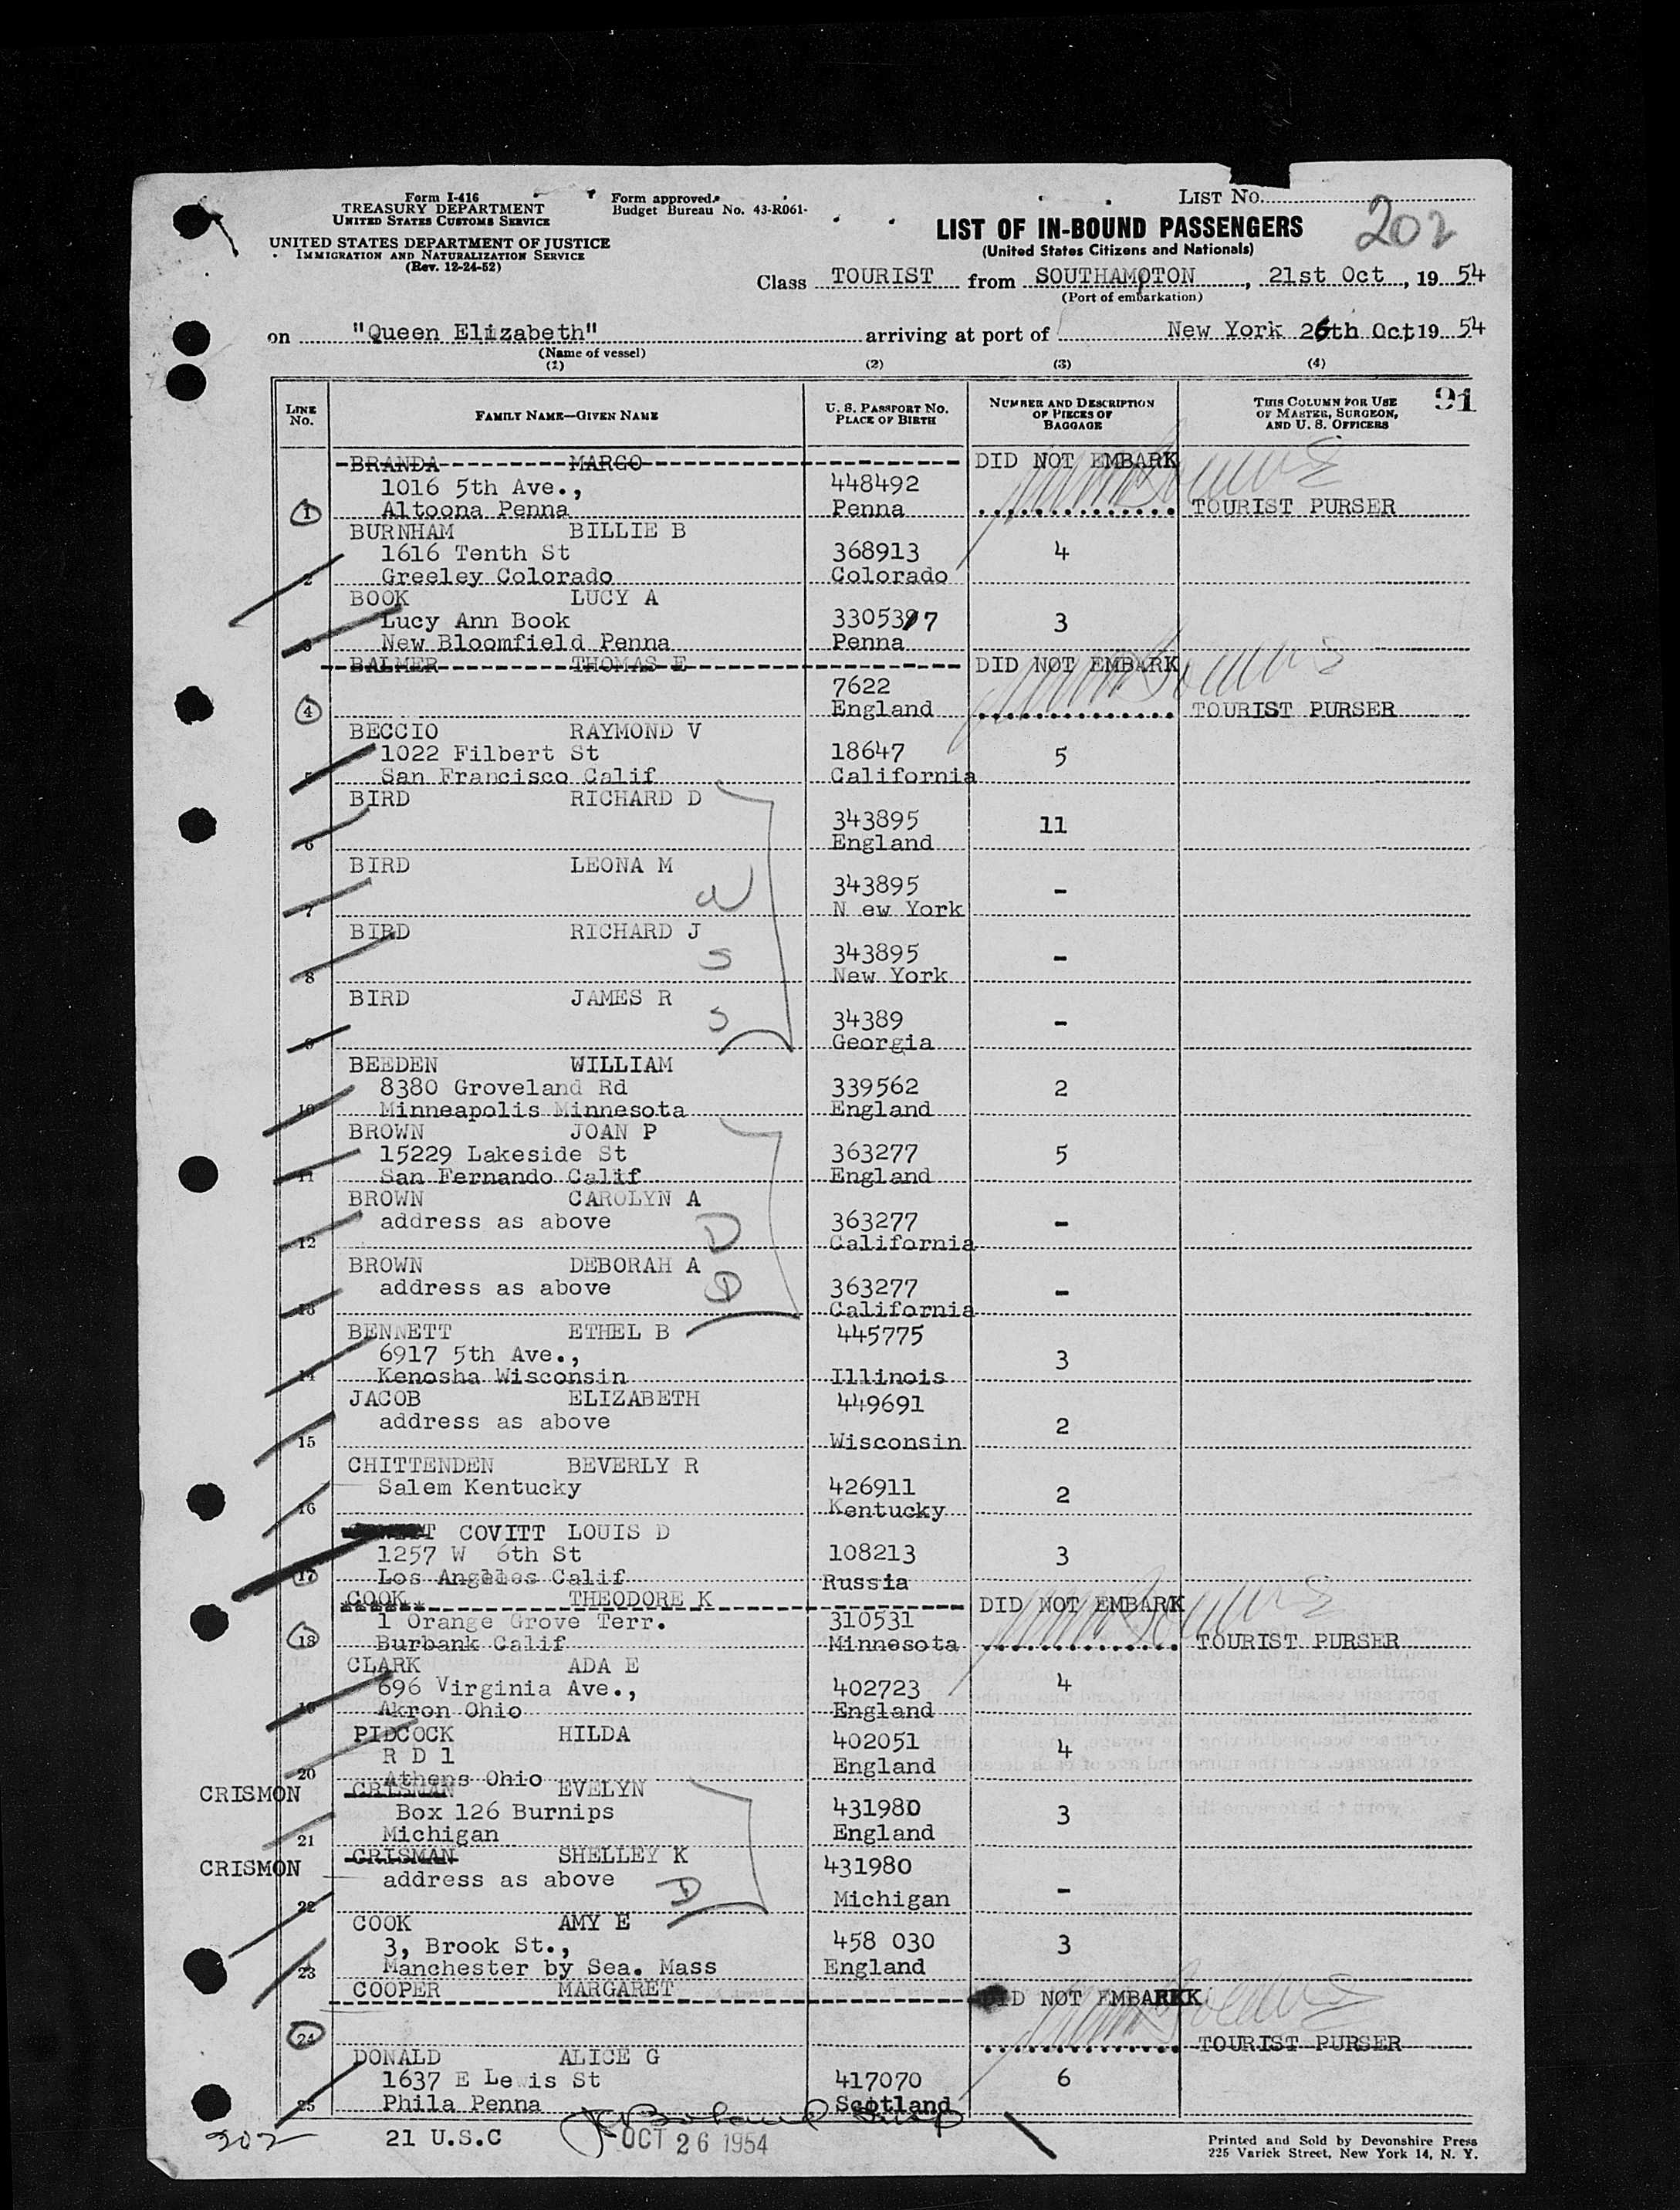 Form I-416
TREASURY DEPARTMENT
UNITED STATES CUSTOMS SERVICE
UNITED STATES DEPARTMENT OF JUSTICE
IMMIGRATION AND NATURALIZATION SERVICE
(Rev. 12-24-52)
Form approved.
Budget Bureau No. 43-R061-
LIST No.
202
LIST OF IN-BOUND PASSENGERS
(United States Citizens and Nationals)
Class TOURIST from SOUTHAMPTON, 21st Oct, 19 54
(Port of embarkation)
on "Queen Elizabeth" arriving at port of New York 26th Oct, 19 54
(Name of vessel)
(1) (2) (3) (4)
LINE No. FAMILY NAME—GIVEN NAME U. S. PASSPORT NO. PLACE OF BIRTH NUMBER AND DESCRIPTION OF PIECES OF BAGGAGE THIS COLUMN FOR USE OF MASTER, SURGEON, AND U. S. OFFICERS 91
BRANDA MARGO DID NOT EMBARK
1016 5th Ave., 448492
1 Altoona Penna Penna TOURIST PURSER
BURNHAM BILLIE B
1616 Tenth St 368913 4
2 Greeley Colorado Colorado
BOOK LUCY A
Lucy Ann Book 330537 3
3 New Bloomfield Penna Penna
BALMER THOMAS E DID NOT EMBARK
7622
4 England TOURIST PURSER
BECCIO RAYMOND V
1022 Filbert St 18647 5
5 San Francisco Calif California
BIRD RICHARD D
343895 11
6 England
BIRD LEONA M
343895 -
W
7 N ew York
BIRD RICHARD J
343895 -
S
8 New York
BIRD JAMES R
34389 -
S
9 Georgia
BEEDEN WILLIAM
8380 Groveland Rd 339562 2
10 Minneapolis Minnesota England
BROWN JOAN P
15229 Lakeside St 363277 5
11 San Fernando Calif England
BROWN CAROLYN A
address as above D 363277 -
12 California
BROWN DEBORAH A
address as above D 363277 -
13 California
BENNETT ETHEL B 445775
6917 5th Ave., 3
14 Kenosha Wisconsin Illinois
JACOB ELIZABETH 449691
address as above 2
15 Wisconsin
CHITTENDEN BEVERLY R
Salem Kentucky 426911 2
16 Kentucky
COVITT LOUIS D
1257 W 6th St 108213 3
17 Los Angeles Calif Russia
COOK THEODORE K DID NOT EMBARK
1 Orange Grove Terr. 310531
18 Burbank Calif Minnesota TOURIST PURSER
CLARK ADA E
696 Virginia Ave., 402723 4
19 Akron Ohio England
PIDCOCK HILDA 402051
R D 1 4
20 Athens Ohio England
CRISMON CRISMAN EVELYN
Box 126 Burnips 431980 3
21 Michigan England
CRISMON CRISMAN SHELLEY K 431980
address as above D -
22 Michigan
COOK AMY E
3, Brook St., 458 030 3
23 Manchester by Sea. Mass England
COOPER MARGARET DID NOT EMBARKK
24 TOURIST PURSER
DONALD ALICE G
1637 E Lewis St 417070 6
25 Phila Penna Scotland
202 21 U.S.C
OCT 26 1954
Printed and Sold by Devonshire Press
225 Varick Street, New York 14, N. Y.